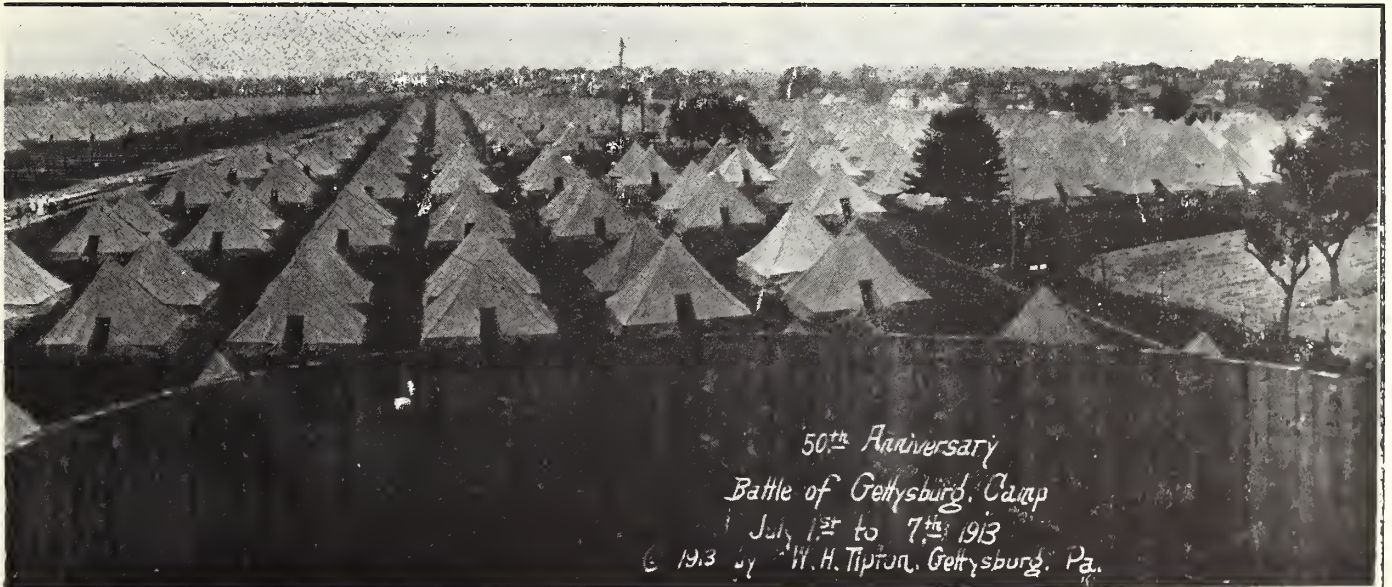 50th Anniversary
Battle of Gettysburg. Camp
July 1st to 7th 1913
© 1913 by W. H. Tipton. Gettysburg. Pa.